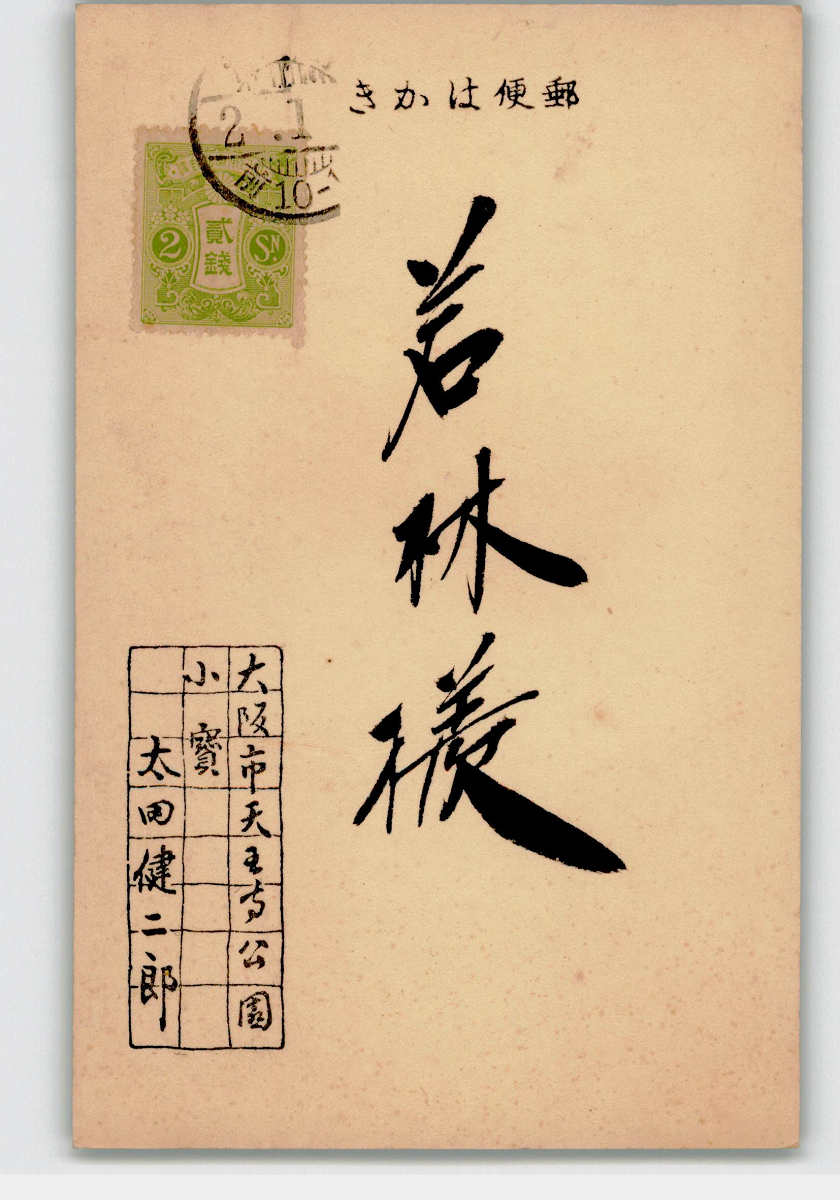 郵便はかき
若林様
大阪市天王寺公園
小寳
太田健二郎
2 貳錢 SN
2.1
前10-